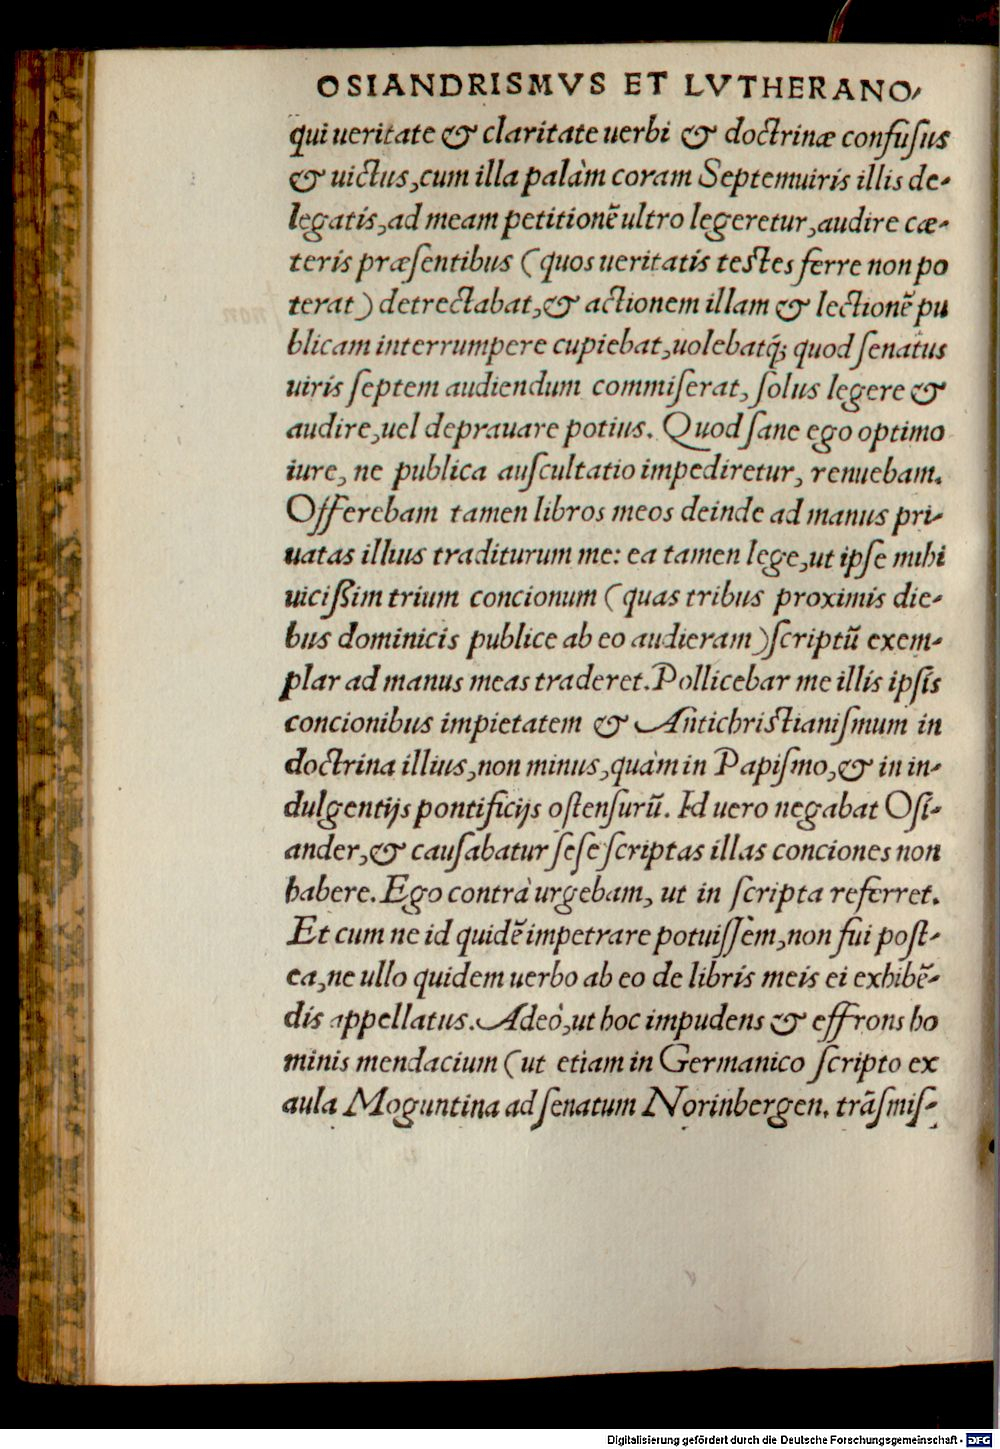 OSIANDRISMVS ET LVTHERANO-
qui ueritate & claritate uerbi & doctrinæ confusus
& uictus, cum illa palàm coram Septemuiris illis de-
legatis, ad meam petitionẽ ultro legeretur, audire cæ-
teris præsentibus (quos ueritatis testes ferre non po
terat) detrectabat, & actionem illam & lectionẽ pu
blicam interrumpere cupiebat, uolebatq́; quod senatus
uiris septem audiendum commiserat, solus legere &
audire, uel deprauare potius. Quod sane ego optimo
iure, ne publica auscultatio impediretur, renuebam.
Offerebam tamen libros meos deinde ad manus pri-
uatas illius traditurum me: ea tamen lege, ut ipse mihi
uicißim trium concionum (quas tribus proximis die-
bus dominicis publice ab eo audieram) scriptũ exem-
plar ad manus meas traderet. Pollicebar me illis ipsis
concionibus impietatem & Antichristianismum in
doctrina illius, non minus, quàm in Papismo, & in in-
dulgentijs pontificijs ostensurũ. Id uero negabat Osi-
ander, & causabatur sese scriptas illas conciones non
habere. Ego contrà urgebam, ut in scripta referret.
Et cum ne id quidẽ impetrare potuissem, non fui post-
ea, ne ullo quidem uerbo ab eo de libris meis ei exhibẽ-
dis appellatus. Adeò, ut hoc impudens & effrons ho
minis mendacium (ut etiam in Germanico scripto ex
aula Moguntina ad senatum Norinbergen. trãsmis-
Digitalisierung gefördert durch die Deutsche Forschungsgemeinschaft - DFG